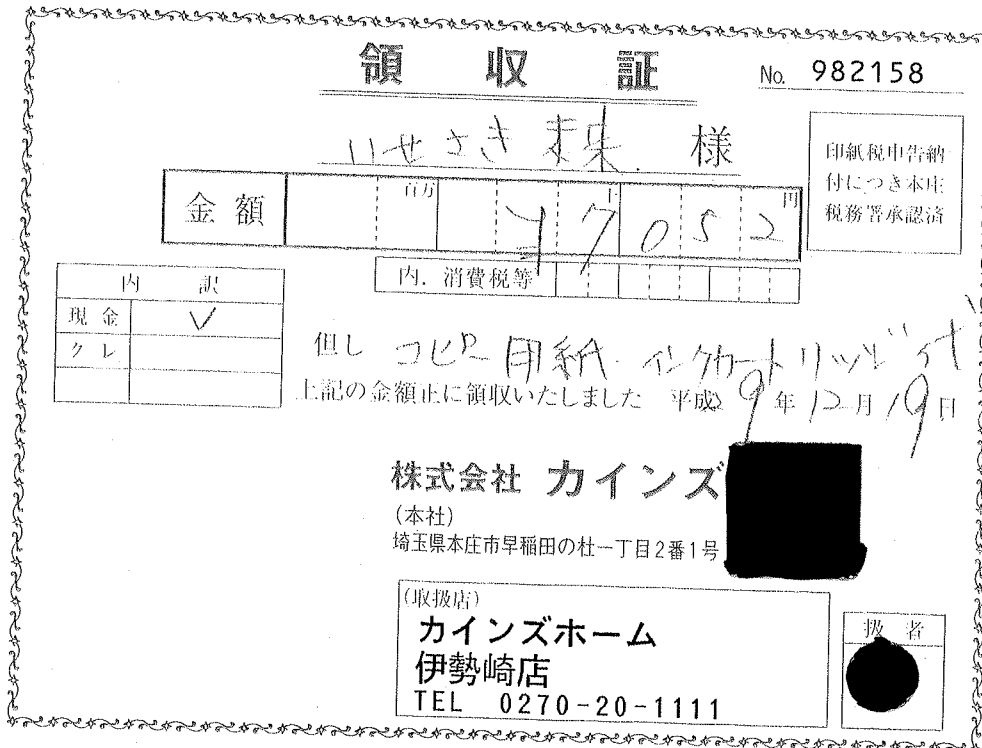 領収証
No. 982158
いせさき未来 様
印紙税申告納
付につき本庄
税務署承認済
金額 百万 千 円
¥47052
内．消費税等
内 訳
現金 ✓
クレ
但し コピー用紙・インクカートリッジ 代
上記の金額正に領収いたしました 平成29年12月19日
株式会社 カインズ
(本社)
埼玉県本庄市早稲田の杜一丁目2番1号
(取扱店)
カインズホーム
伊勢崎店
TEL 0270-20-1111
扱者